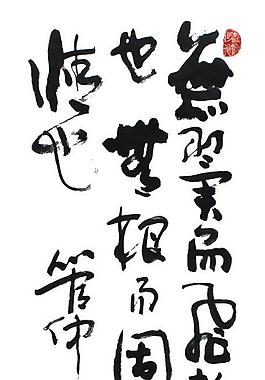 無翼而飛
也無根而固
情也
管仲